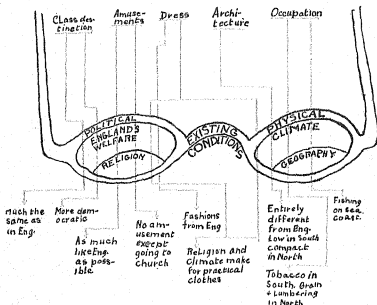 Class des-
tinction
Amuse-
ments
Dress
Archi-
tecture
Occupation
POLITICAL
ENGLAND'S
WELFARE
RELIGION
EXISTING
CONDITIONS
PHYSICAL
CLIMATE
GEOGRAPHY
Much the
same as
in Eng.
More dem-
ocratic
As much
like Eng.
as pos-
sible
No am-
usement
except
going to
church
Fashions
from Eng
Religion and
Climate make
for practical
clothes
Entirely
different
from Eng-
Low in South
compact
in North
Tobacco in
South. Grain
+ Lumbering
in North
Fishing
on sea
coast.